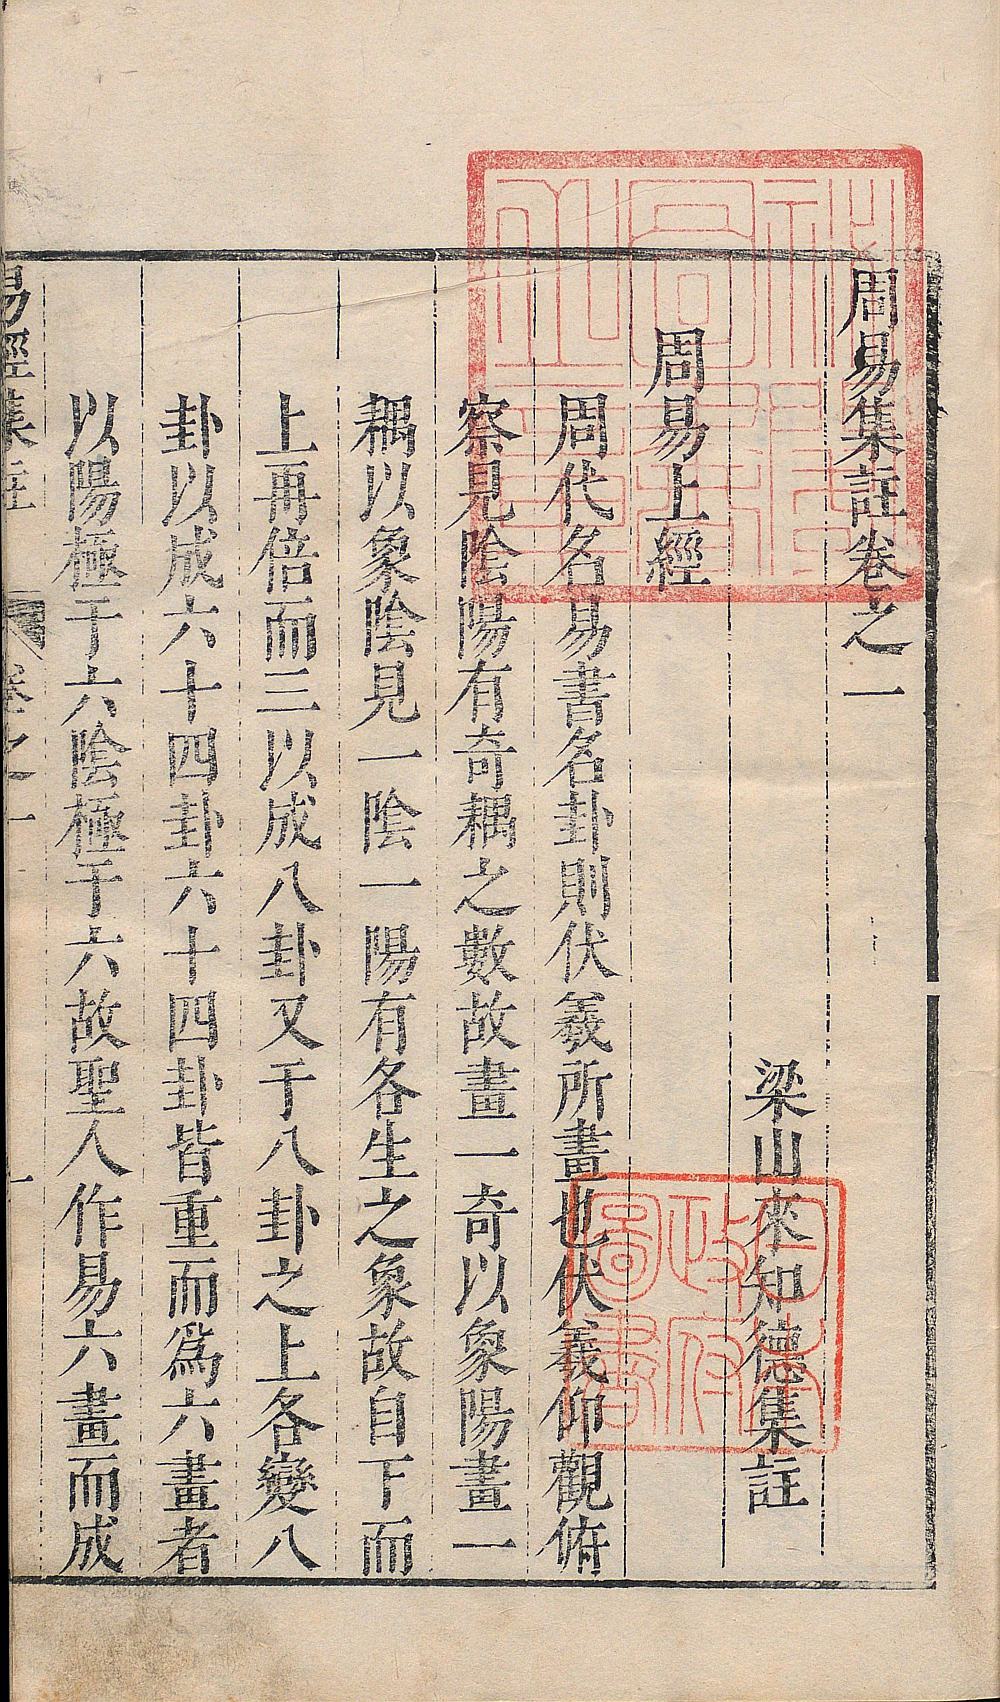 周易集註卷之一
梁山來知德集註
周易上經
周代名易書名卦則伏羲所畫也伏羲仰觀俯
察見陰陽有奇耦之數故畫一奇以象陽畫一
耦以象陰見一陰一陽有各生之象故自下而
上再倍而三以成八卦又于八卦之上各變八
卦以成六十四卦六十四卦皆重而爲六畫者
以陽極于六陰極于六故聖人作易六畫而成
易經集註 卷之一 一
日本政府圖書